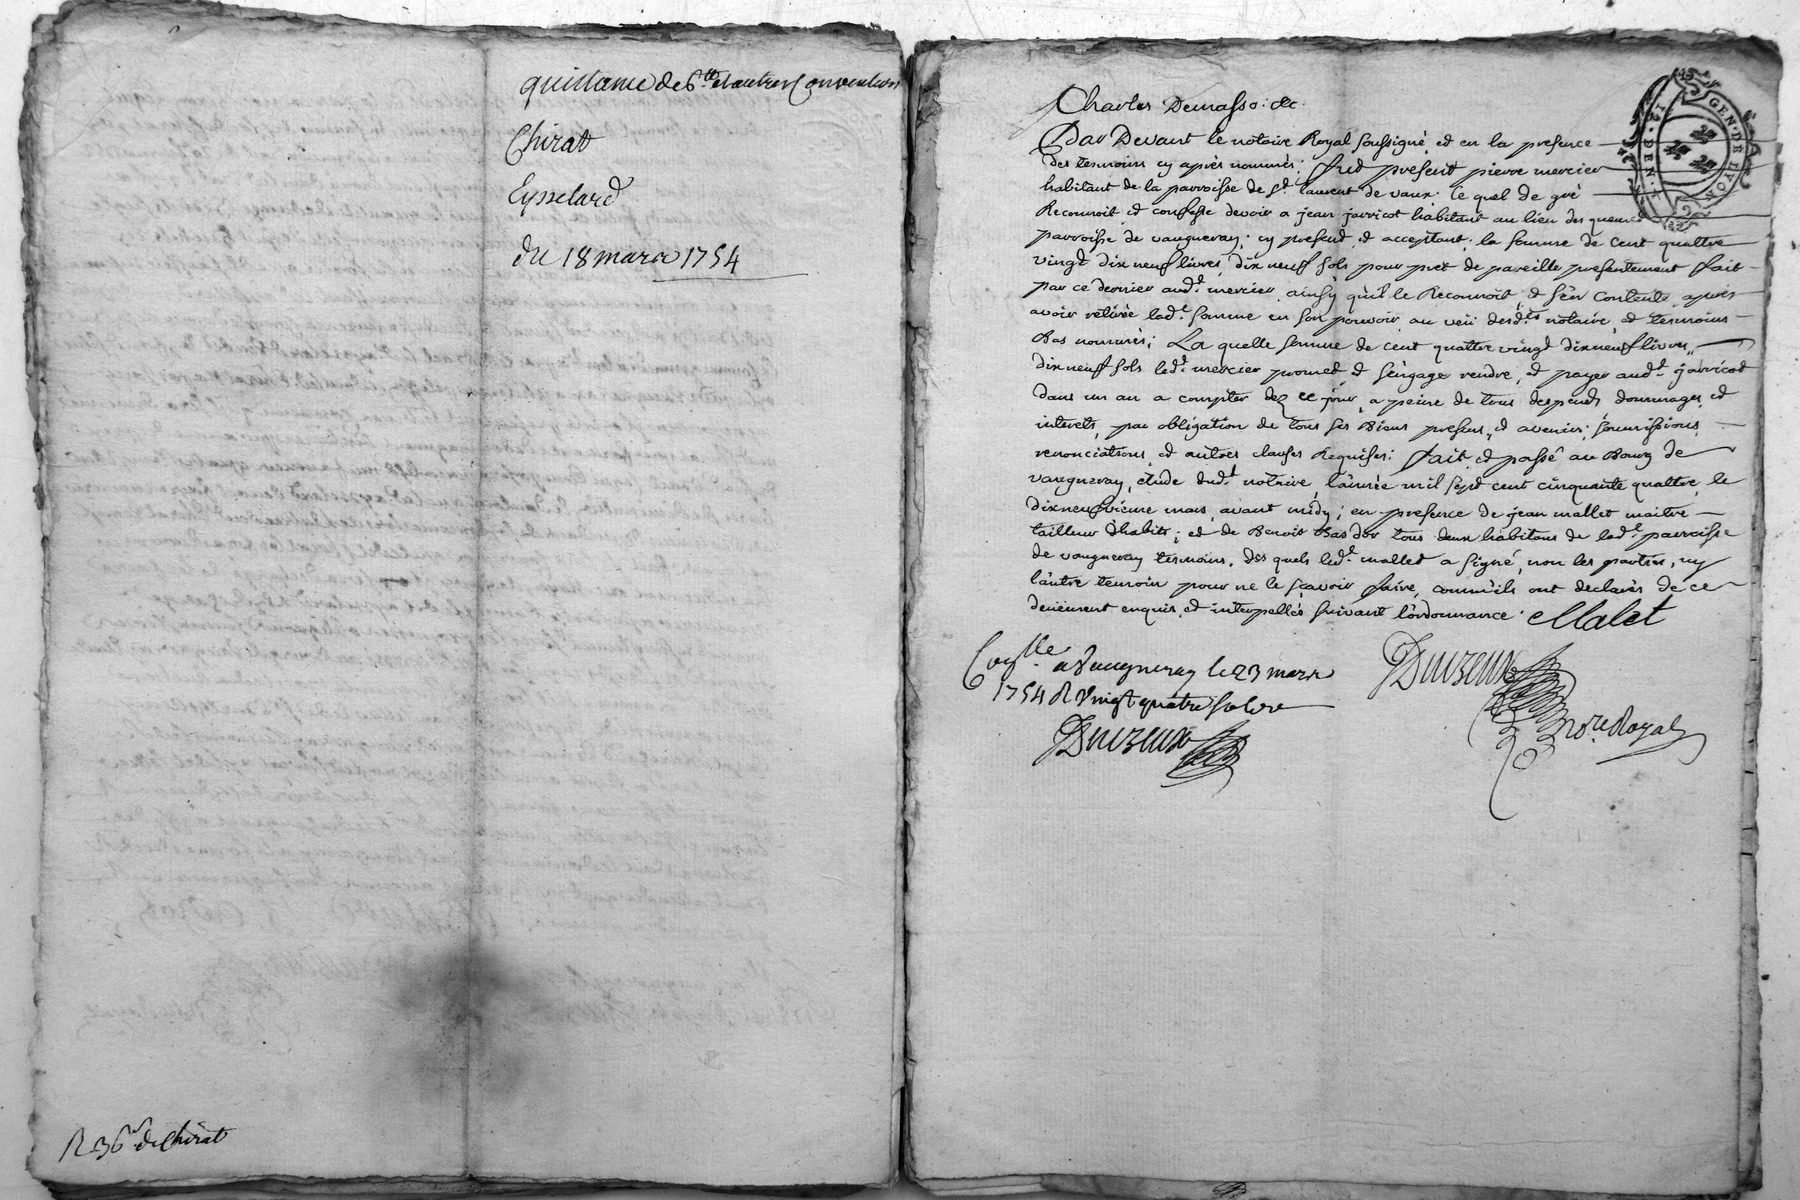 quittance de 6 lt et autres Conventions
Chirat
Eysselard
du 18 mars 1754
R 36 s de Chirat
Charles Demasso: &c.
Par Devant le notaire Royal soussigné, et en la presence
des temoins cy après nommés; fut présent pierre mercier
habitant de la parroisse de st. laurent de vaux; le quel de gré
Reconnoit et confesse devoir a jean jarricot habitant au lieu des
parroisse de vaugneray; cy present, et acceptant, la somme de cent quattre
vingt dix neuf livres, dix neuf sols pour pret de pareille presentement fait
par ce dernier audt. mercier, ainsy qu'il le Reconnoit, et s'en contente, après
avoir retirée ladt. somme en son pouvoir, au veü desdts notaire, et temoins
Bas nommés; La quelle somme de cent quattre vingt dix neuf livres,
dix neuf sols ledt. mercier promet, et s'engage rendre, et payer audt. jarricot
dans un an a compter dez ce jour, a peine de tous despends dommages, et
interets, par obligation de tous ses Biens presens, et avenir; soumissions,
renonciations, et autres clauses Requises; fait et passé au Bourg de
vaugneray, étude dudt. notaire, l'année mil sept cent cinquante quattre, le
dix neufvieme mars, avant midy; en presence de jean mallet maitre
tailleur d'habits; et de Benoit Basdor tous deux habitans de ladt. parroisse
de vaugneray temoins, des quels ledt. mallet a signé, non les parties, ny
l'autre temoin pour ne le sçavoir faire, comm'ils ont declarés de ce
deüement enquis, et interpellés suivant l'ordonnance. Malet
Conlle a Vaugneray le 23 mars
1754 R vingt quatre sols
no.re Royal
GEN. DE LYON